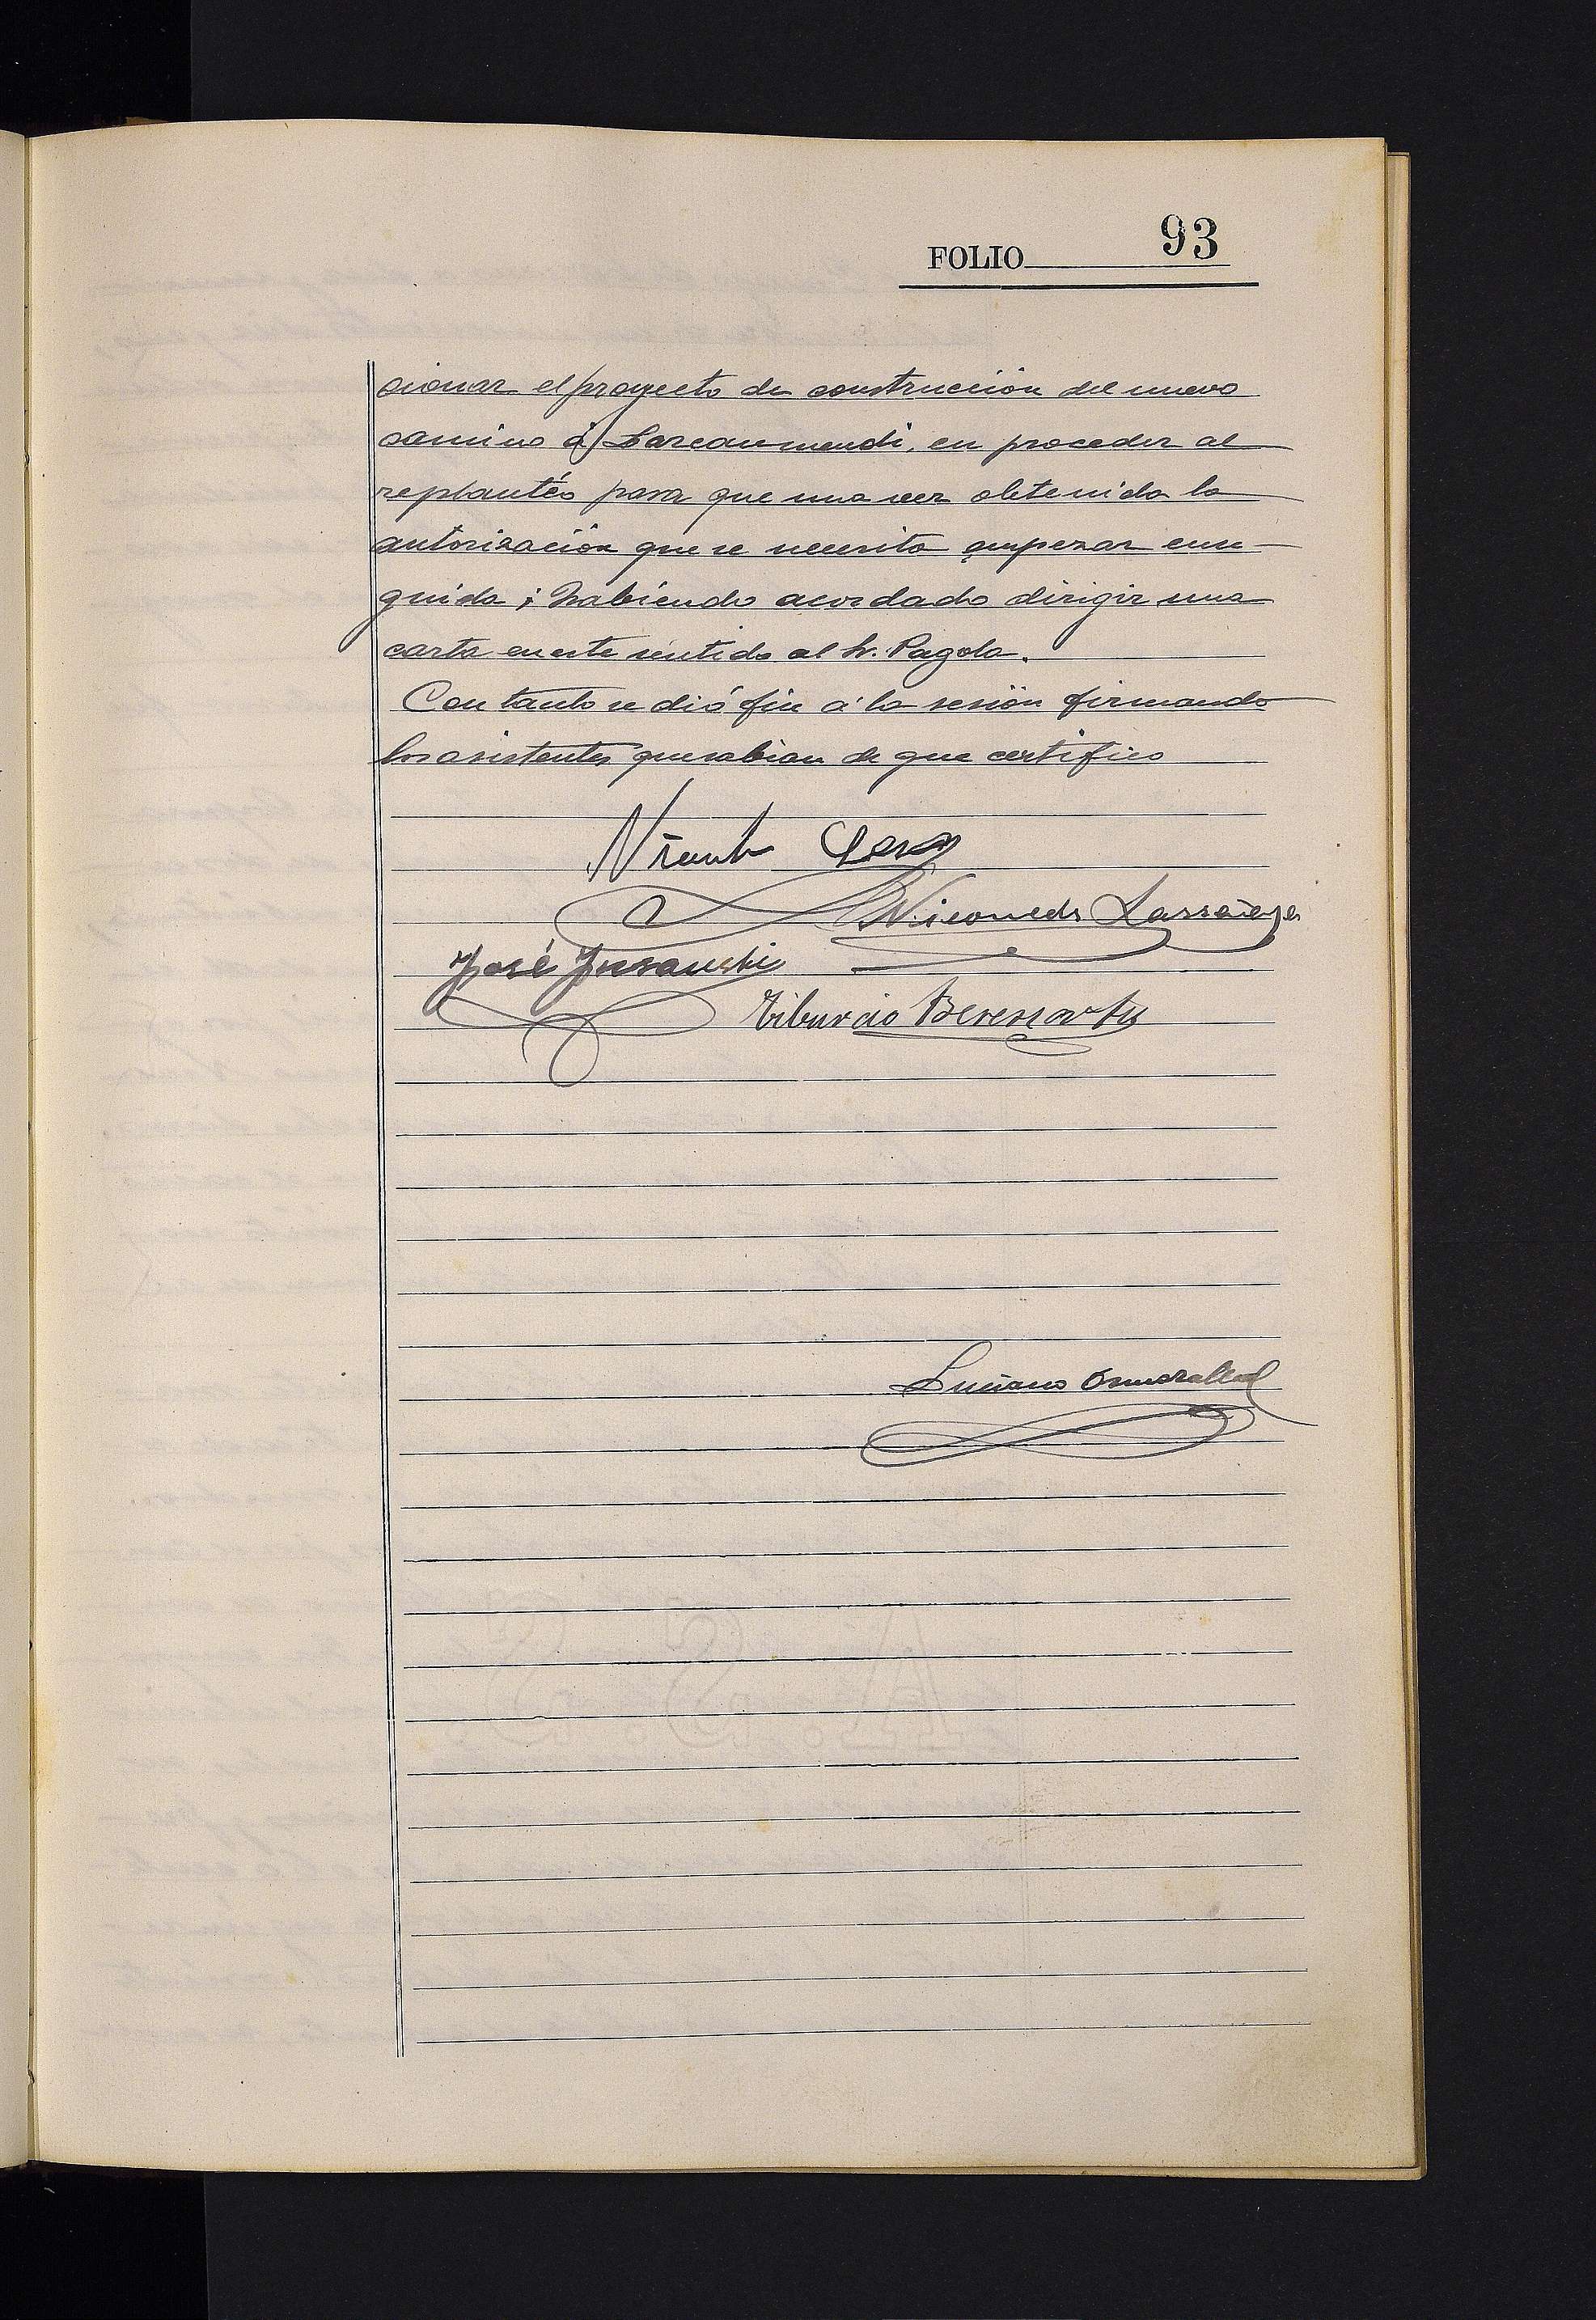 FOLIO 93
cionar el proyecto de construcción del nuevo
camino á Larcaumendi, en proceder al
replantéo para que una vez obtenida la
autorización que se necesita empezar ense-
guida; habiendo acordado dirigir una
carta en este sentido al Sr. Pagola.
Con tanto se dió fin á la sesión firmando
los asistentes que sabian de que certifico
Vicente
Nicomedes
José Insausti
Tiburcio Berenartu
Luciano
A. S. S.